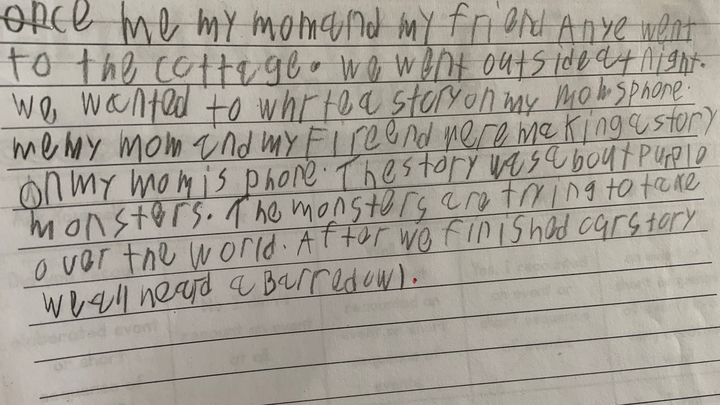 once me my mom and my friend Anye went
to the cottage. we went outside at night.
we wanted to whrte a story on my momsphone.
me my mom and my Fireend were making a story
on my momis phone. The story was about purplo
monsters. The monsters are trying to take
over the world. After we finished oar story
we all heard a Barred owl.